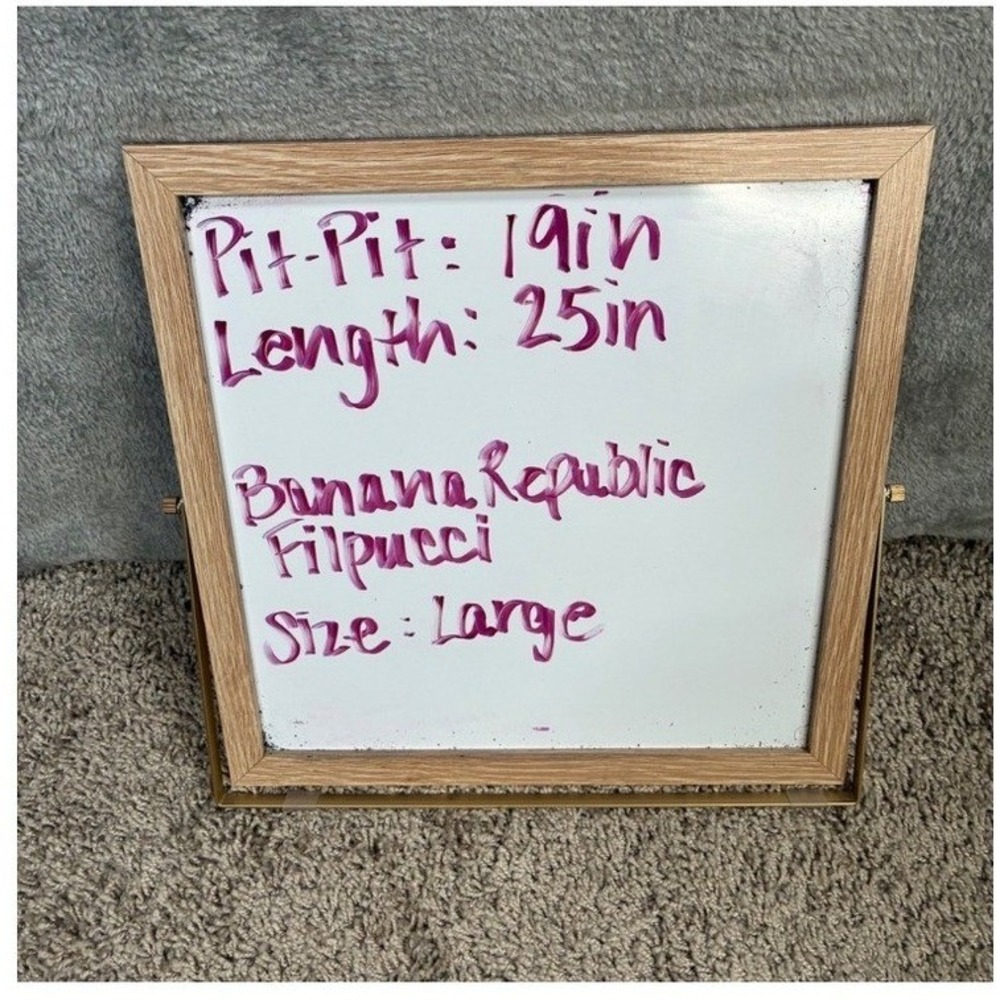 Pit-Pit: 19in
Length: 25in
Banana Republic
Filpucci
Size: Large